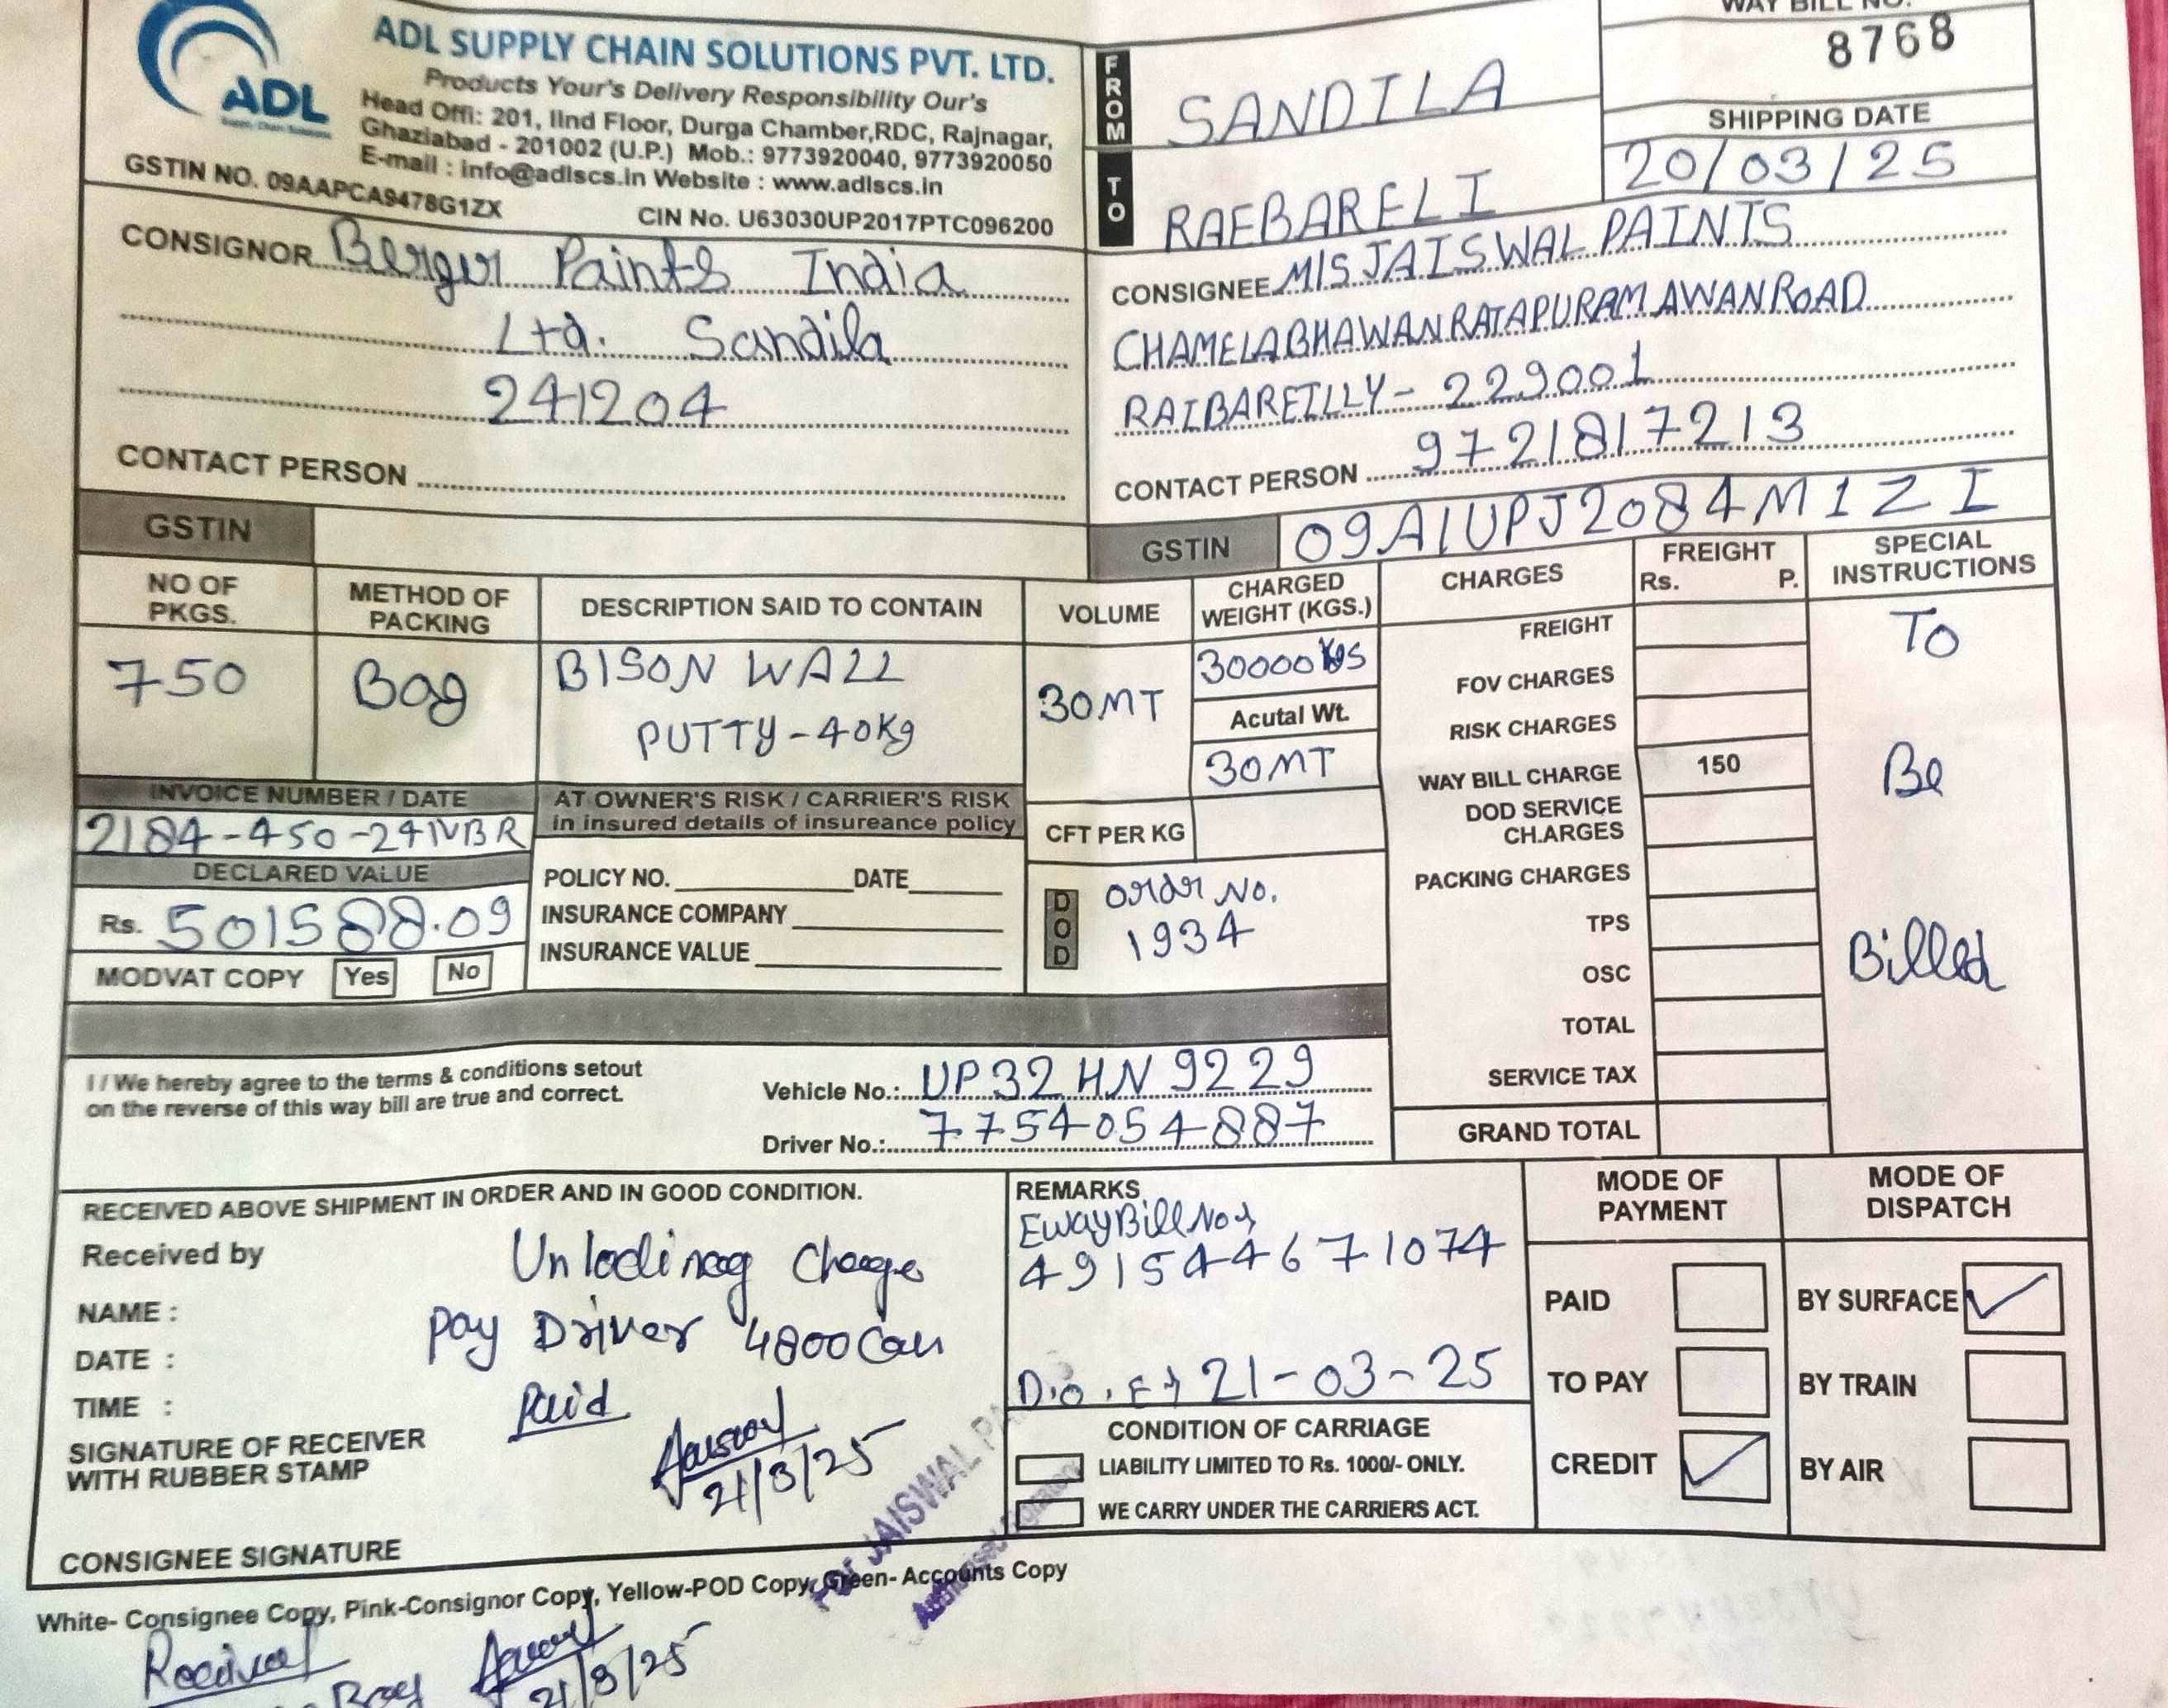 ADL
Supply Chain Solutions
ADL SUPPLY CHAIN SOLUTIONS PVT. LTD.
Products Your's Delivery Responsibility Our's
Head Offi: 201, IInd Floor, Durga Chamber,RDC, Rajnagar,
Ghaziabad - 201002 (U.P.) Mob.: 9773920040, 9773920050
E-mail : info@adlscs.in Website : www.adlscs.in
GSTIN NO. 09AAPCA9478G1ZX
CIN No. U63030UP2017PTC096200
FROM SANDILA
TO RAEBARELI
WAY BILL NO.
8768
SHIPPING DATE
20/03/25
CONSIGNOR Berger Paints India
Ltd. Sandila
241204
CONTACT PERSON
GSTIN
CONSIGNEE M/S JAISWAL PAINTS
CHAMELABHAWAN RATAPURAM AWAN ROAD
RAIBAREILLY - 229001
CONTACT PERSON 9721817213
GSTIN 09AIUPJ2084M1ZI
NO OF PKGS. METHOD OF PACKING DESCRIPTION SAID TO CONTAIN VOLUME CHARGED WEIGHT (KGS.) CHARGES FREIGHT Rs. P. SPECIAL INSTRUCTIONS
750 Bag BISON WALL 30MT 30000 KGS
PUTTY - 40Kg
Acutal Wt.
30MT
INVOICE NUMBER / DATE
2184-450-241VBR
DECLARED VALUE
Rs. 501588.09
MODVAT COPY Yes No
AT OWNER'S RISK / CARRIER'S RISK
in insured details of insureance policy
POLICY NO. DATE
INSURANCE COMPANY
INSURANCE VALUE
CFT PER KG
DOD
Order No.
1934
FREIGHT
FOV CHARGES
RISK CHARGES
WAY BILL CHARGE 150
DOD SERVICE
CH.ARGES
PACKING CHARGES
TPS
OSC
TOTAL
SERVICE TAX
GRAND TOTAL
To
Be
Billed
I / We hereby agree to the terms & conditions setout
on the reverse of this way bill are true and correct.
Vehicle No.: UP32 HN 9229
Driver No.: 7754054887
RECEIVED ABOVE SHIPMENT IN ORDER AND IN GOOD CONDITION.
Received by
NAME :
DATE :
TIME :
SIGNATURE OF RECEIVER
WITH RUBBER STAMP
CONSIGNEE SIGNATURE
Unlodinag Charge
Pay Driver 4800
Paid
Jaiswal
21/3/25
For JAISWAL PAINTS
REMARKS
EwayBill No
491544671074
D.O.E 21-03-25
CONDITION OF CARRIAGE
LIABILITY LIMITED TO Rs. 1000/- ONLY.
WE CARRY UNDER THE CARRIERS ACT.
MODE OF PAYMENT
PAID
TO PAY
CREDIT
MODE OF DISPATCH
BY SURFACE
BY TRAIN
BY AIR
White- Consignee Copy, Pink-Consignor Copy, Yellow-POD Copy, Green- Accounts Copy
Received
21/3/25